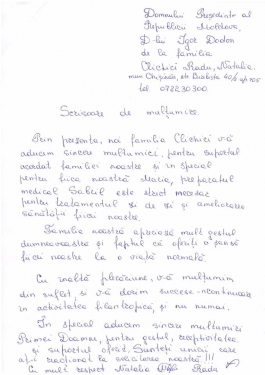 Domnului Președinte al
Republicii Moldova,
D-lui Igor Dodon
de la familia
Clichici Radu, Natalia.
mun Chișinău, str Budeste
tel 0722.30.300
Scrisoare de mulțumire
Prin prezenta, noi familia Clichici vă
aducem sincere mulțumiri, pentru suportul
acordat familiei noastre și în special
pentru fiica noastră Maria, preparatul
medical Sabril este strict necesar
pentru tratamentul zi de zi și ameliorarea
sănătății fiicei noastre.
Familia noastră apreciază mult gestul
dumneavoastră și faptul că oferiți o șansă
fiicei noastre la o viață normală.
Cu înaltă plăcere, vă mulțumim
din suflet și vă dorim succese -ncontinuare
în activitatea filantropică, și nu numai.
În special aducem sincere mulțumiri
Primei Doamne, pentru gestul, receptivitatea
și suportul oferit. Sunteți unicii care
ați reacționat la solicitarea noastră!!!
Cu mult respect Natalia Radu